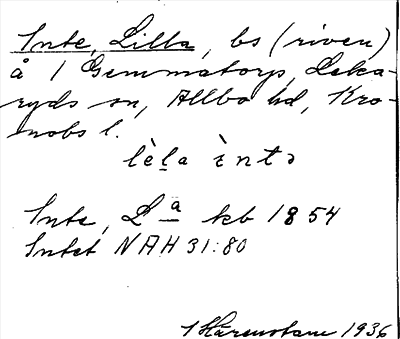 Inte, Lilla, bs (riven)
å 1 Gemmatorp, Leka-
ryds sn, Allbo hd, Kro-
nobs l.
lèḷa ìntə
Inte, L a kb 1854
Intet NAH 31:80
1936